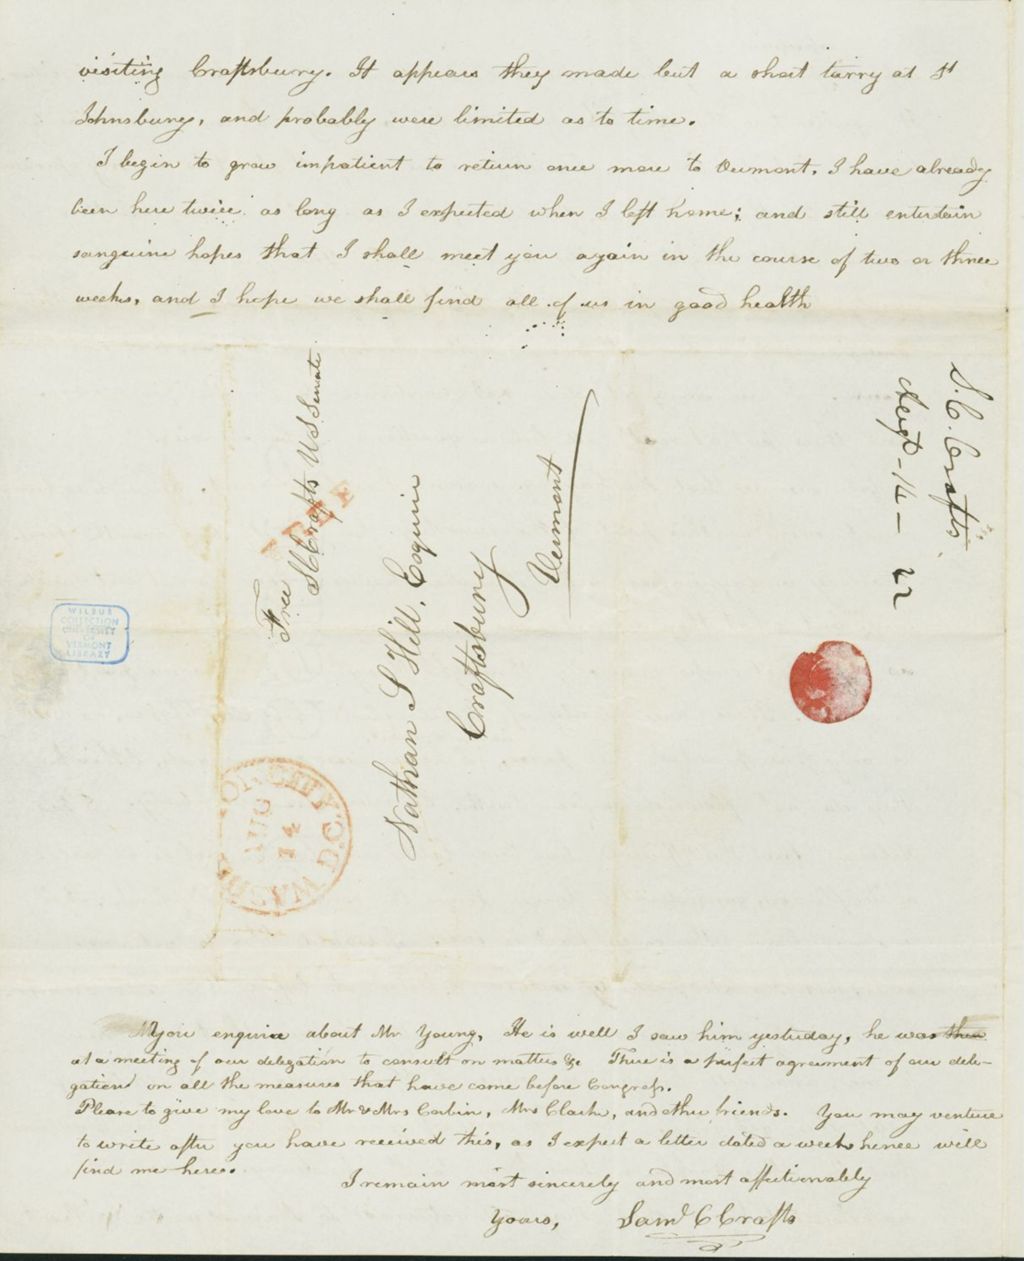 visiting Craftsbury. It appears they made but a short tarry at St
Johnsbury, and probably were limited as to time.
I begin to grow impatient to return once more to Vermont, I have already
been here twice as long as I expected when I left home; and still entertain
sanguine hopes that I shall meet you again in the course of two or three
weeks, and I hope we shall find all of us in good health
S. C. Crafts.
Augt - 14 - 22
Free
S C Crafts U S Senate
FREE
Nathan S Hill, Esquire
Craftsbury
Vermont
WILBUR
COLLECTION
UNIVERSITY
OF
VERMONT
LIBRARY
WASHINGTON CITY D.C.
AUG
14
You enquire about Mr Young, He is well I saw him yesterday, he was then
at a meeting of our delegation to consult on matters &c There is a perfect agreement of our dele-
gation on all the measures that have come before Congress.
Please to give my love to Mr & Mrs Corbin, Mrs Clark, and other friends. You may venture
to write after you have received this, as I expect a letter dated a week hence will
find me here.
I remain most sincerely and most affectionately
Yours, Saml C Crafts